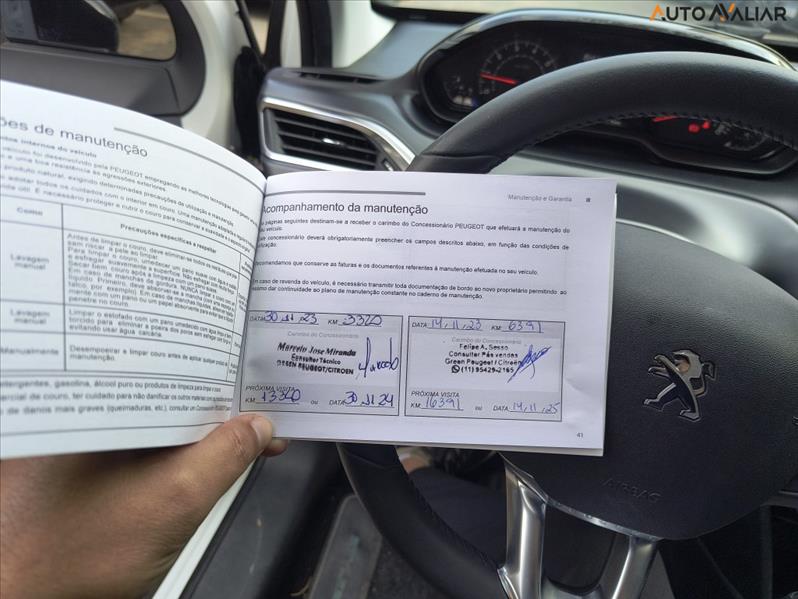 AUTOAVALIAR
ões de manutenção
internos do veículo
veículo foi desenvolvido pela PEUGEOT empregando as melhores tecnologias
e uma boa resistência às agressões exteriores
produto natural, exigindo determinadas precauções de utilização e manutenção.
Como
Precauções específicas a respeitar
Lavagem manual
Antes de limpar o couro, deve eliminar-se todos os resíduos que
sem riscar a pele ao limpar.
Para limpar o couro, umedecer um pano suave com água e sabão
e esfregar suavemente a superfície. Não esfregar com força.
Secar bem o couro após a limpeza com um pano suave.
Em caso de manchas de gordura: NUNCA limpar o couro com
líquido. Primeiro, deve absorver-se a mancha
penetre no couro.
Lavagem manual
Limpar o estofado com um pano umedecido com água limpa
torcido para eliminar a poeira dos poros sem esfregar com
evitando usar água calcária.
Manualmente
Desempoeirar a limpeza do couro antes de aplicar qualquer
manutenção.
detergentes, gasolina, álcool puro ou produtos de limpeza para limpar o couro
de couro, ter cuidado para não danificar os outros materiais com
de danos mais graves (queimaduras, etc.), consultar um Concessionário PEUGEOT
Manutenção e Garantia
Acompanhamento da manutenção
páginas seguintes destinam-se a receber o carimbo do Concessionário PEUGEOT que efetuará a manutenção do
seu veículo.
concessionário deverá obrigatoriamente preencher os campos descritos abaixo, em função das condições de
utilização.
Recomendamos que conserve as faturas e os documentos referentes à manutenção efetuada no seu veículo.
Em caso de revenda do veículo, é necessário transmitir toda documentação de bordo ao novo proprietário permitindo ao
mesmo dar continuidade ao plano de manutenção constante no caderno de manutenção.
DATA 30.11.23 KM 3320
Carimbo do Concessionário
Marcelo Jose Miranda
Consultor Técnico
GREEN PEUGEOT/CITROEN
PRÓXIMA VISITA
KM 13320 ou DATA 30.11.24
DATA: 14,11,23 KM: 6391
Carimbo do Concessionário
Felipe A. Sesso
Consultor Pós vendas
Green Peugeot / Citroën
(11) 95429-2165
PRÓXIMA VISITA
KM: 16391 ou DATA: 14,11,25
41
AIRBAG